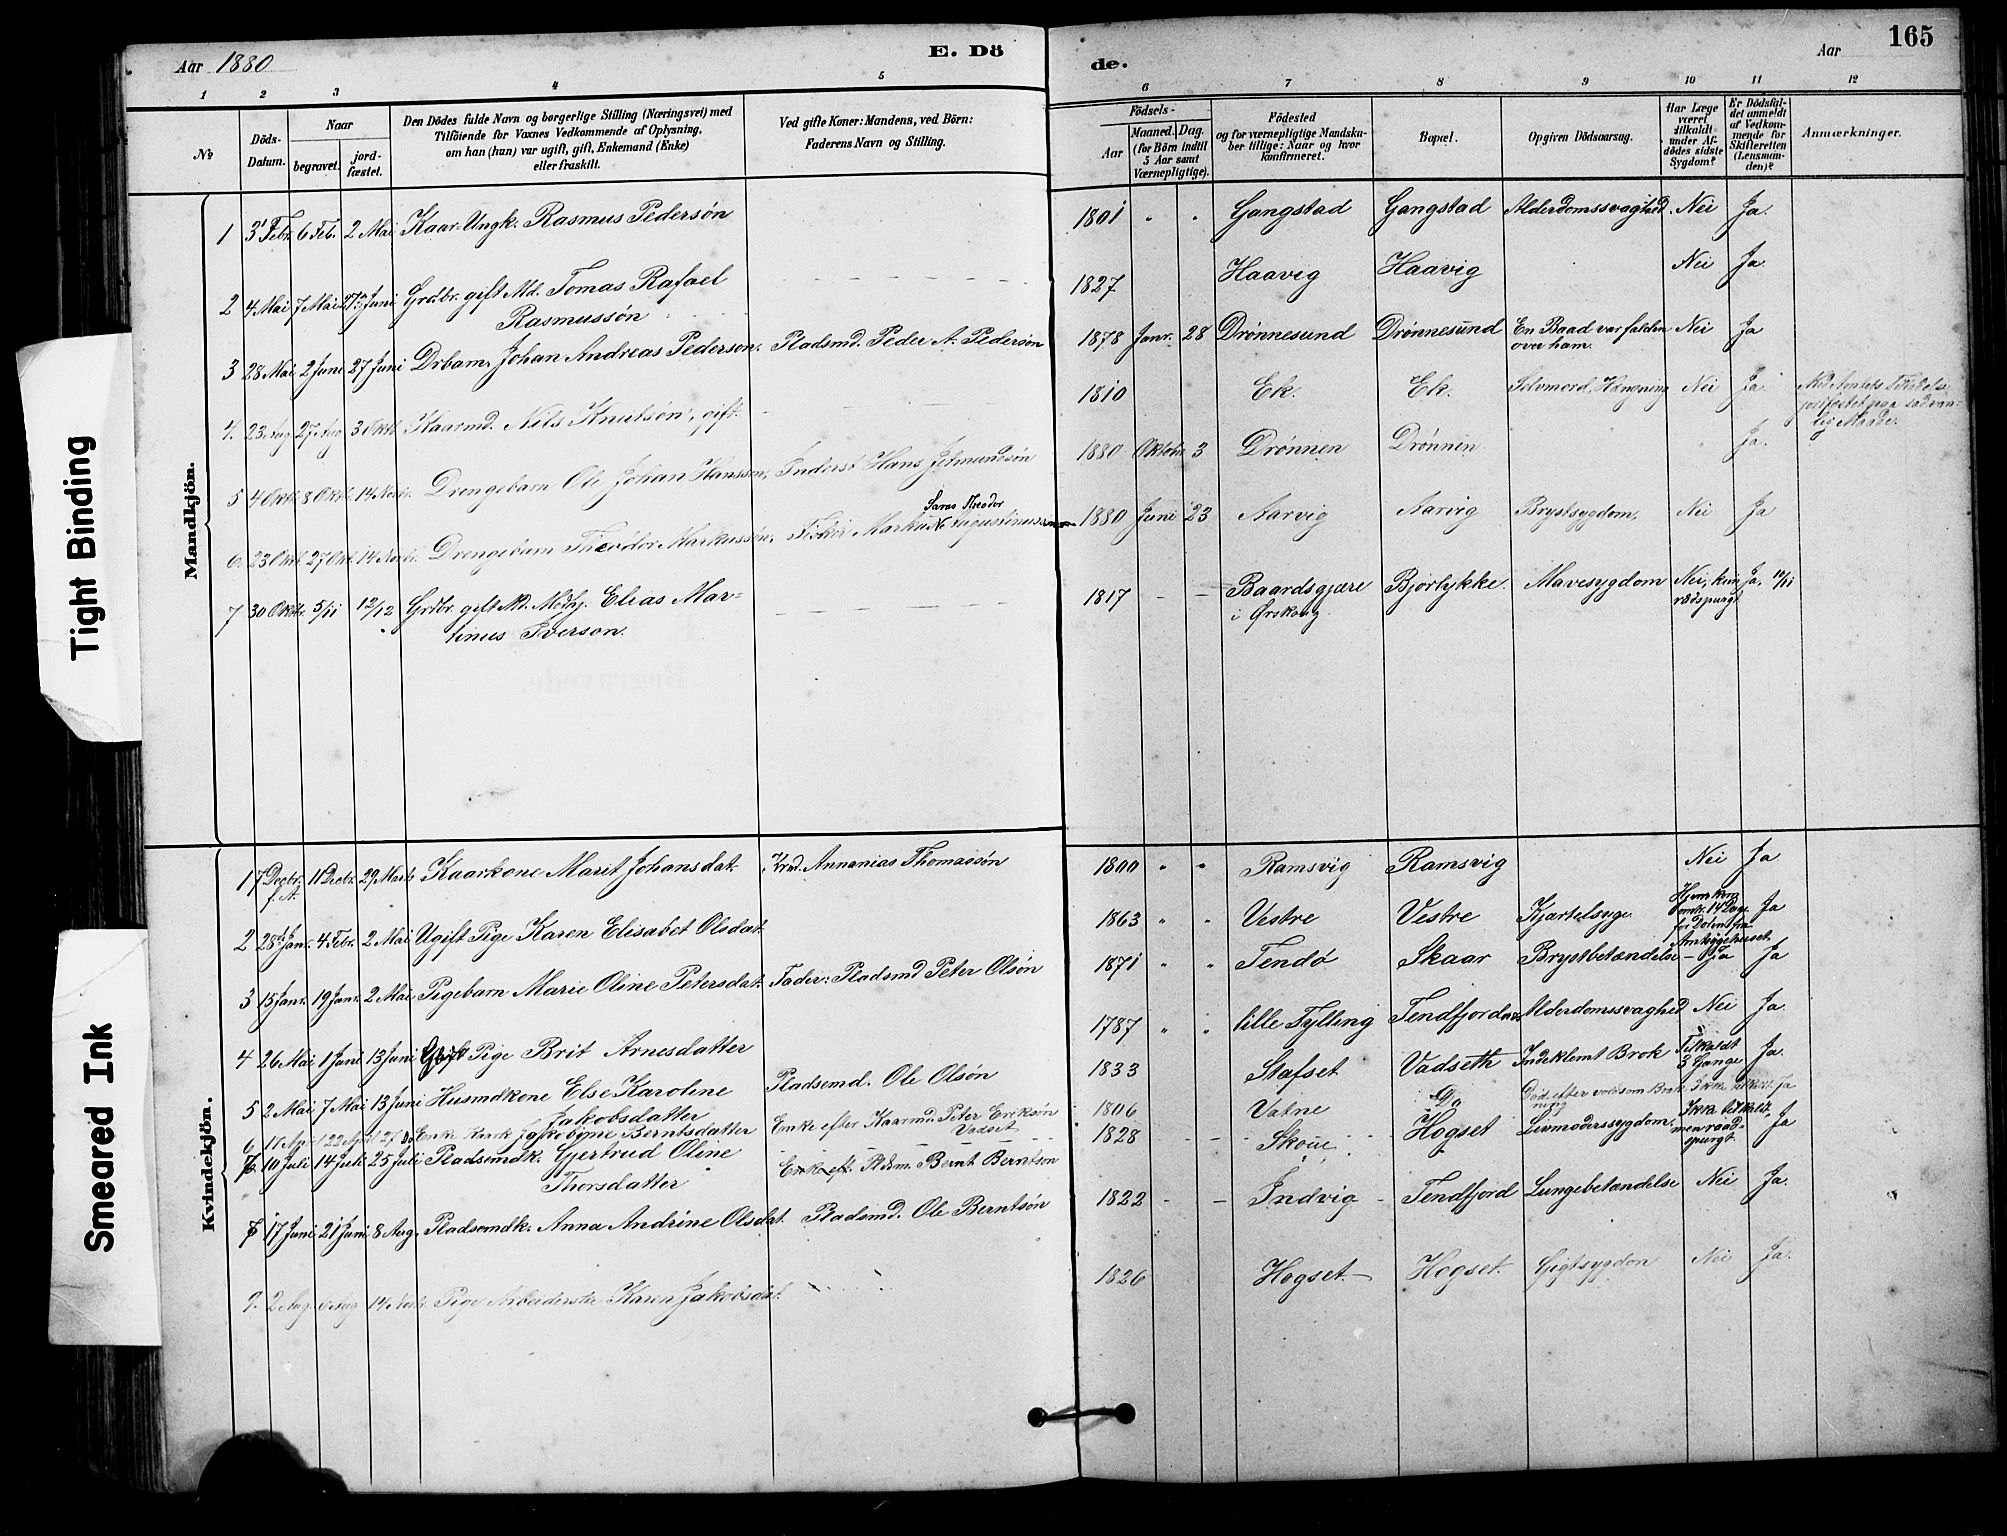 Aar 1880
E. Dö
de.
Aar
165
1 2 3 4 5 6 7 8 9 10 11 12
No
Döds-Datum.
Naar
begravet.
jord-fæstet.
Den Dödes fulde Navn og borgerlige Stilling (Næringsvei) med
Tilföiende for Voxnes Vedkommende af Oplysning,
om han (hun) var ugift, gift, Enkemand (Enke)
eller fraskilt.
Ved gifte Koner: Mandens, ved Börn:
Faderens Navn og Stilling.
Födsels-
Aar
Maaned. Dag.
(for Börn indtil
5 Aar samt
Værnepligtige).
Födested
og for værnepligtige Mandska-
ber tillige: Naar og hvor
konfirmeret.
Bopæl.
Opgiven Dödsaarsag.
Har Læge
været
tilkaldt
under Af-
dödes sidste
Sygdom?
Er Dödsfal-
det anmeldt
af Vedkom-
mende for
Skifteretten
(Lensman-
den)?
Anmærkninger.
Mandkjön.
1 3 Febr. 6 Feb. 2 Mai Kaar-Ungk. Rasmus Pedersøn 1801 " " Gangstad Gangstad Alderdomssvaghed. Nei Ja.
2 4 Mai 7 Mai 27 Juni Grdbr. gift Md. Tomas Rafael 1827 Haavig Haavig Nei Ja.
Rasmussøn
3 28 Mai 2 Juni 27 Juni Drbarn. Johan Andreas Pedersøn. Pladsmd. Peder A. Pedersøn 1878 Janr. 28 Drønnesund Drønnesund En Baad var falden Nei Ja
over ham.
4. 23 Aug 27 Aug 3 Oktb Kaarmd. Nils Knutsøn, gift. 1810 Ek. Ek. Selvmord, Hængning Nei Ja.
jordfæstet paa sædvan-
lig Maade.
5 4 Oktb 8 Oktb. 14 Novbr. Drengebarn Ole Johan Hanssøn, Inderst Hans Jetmundsøn 1880 Oktober 3 Drønnen Drønnen Ja.
6. 23 Oktb. 27 Okt. 14 Novbr. Drengebarn Theodor Markussøn, Fisker Markus Augustinussen 1880 Juni 23 Aarvig Aarvig Brystsygdom. Nei Ja
7 30 Oktb. 5/11 12/12 Grdbr. gift Md. Medhj. Elias Mar- 1817 – – Baardsgjære Bjørlykke. Mavesygdom Nei, kun Ja, 10/11
tinus Iversøn. i Ørskoug raadspurgt
Kvindekjön.
1 7 Decbr. 11 Decbr. 29 Marts Kaarkone Marit Johansdat. Krmd. Annanias Thomassøn 1800 " " Ramsvig Ramsvig Nei Ja
f. A.
2 28 Janr. 4 Febr. 2 Mai Ugift Pige Karen Elisabet Olsdat. 1863 " " Vestre Vestre Kjertelsyge. Hjemkom omtr. 14 Dage før Døden fra Amtssygehuset. Ja
3 15 Janr. 19 Janr. 2 Mai Pigebarn Marie Oline Petersdat. Fader: Pladsmd Peter Olsøn 1871 " " Tendø Skaar Brystbetændelse – Ja Ja
4 26 Mai 1 Juni 13 Juni Pige Brit Arnesdatter 1787 " " lille Fylling Tendfjord Alderdomssvaghed Nei Ja.
5 2 Mai 7 Mai 13 Juni Husmdkone Else Karoline Pladsemd. Ole Olsøn 1833 Stafset Vadseth Indeklemt Brok Tilkaldt 3 Gange Ja.
Jakobsdatter
6 17 April 22 April 27 Do Enke Jakobine Berntsdatter Enke efter Kaarmd. Peter Eriksøn Vadset 1806 Vatne Do Ja
7 10 Juli 14 Juli 25 Juli Pladsemdk. Gjertrud Oline Enke eft. Pldsm. Bernt Berntsøn 1828 Skoue Hogset Livmoderssygdom. Ikke tilkaldt, men raad-spurgt. Ja
Thorsdatter
8 17 Juni 21 Juni 8 Aug. Pladsemdk. Anna Andrine Olsdat Pladsmd. Ole Berntsøn 1822 – – Indvig Tendfjord Lungebetændelse Nei Ja.
9. 2 Aug. 6 Aug 14 Novbr. Pige Arbeiderske Karen Jakobsdat. 1826 Hogset. Hogset. Gigtsygdom Nei Ja.
Tight Binding
Smeared Ink